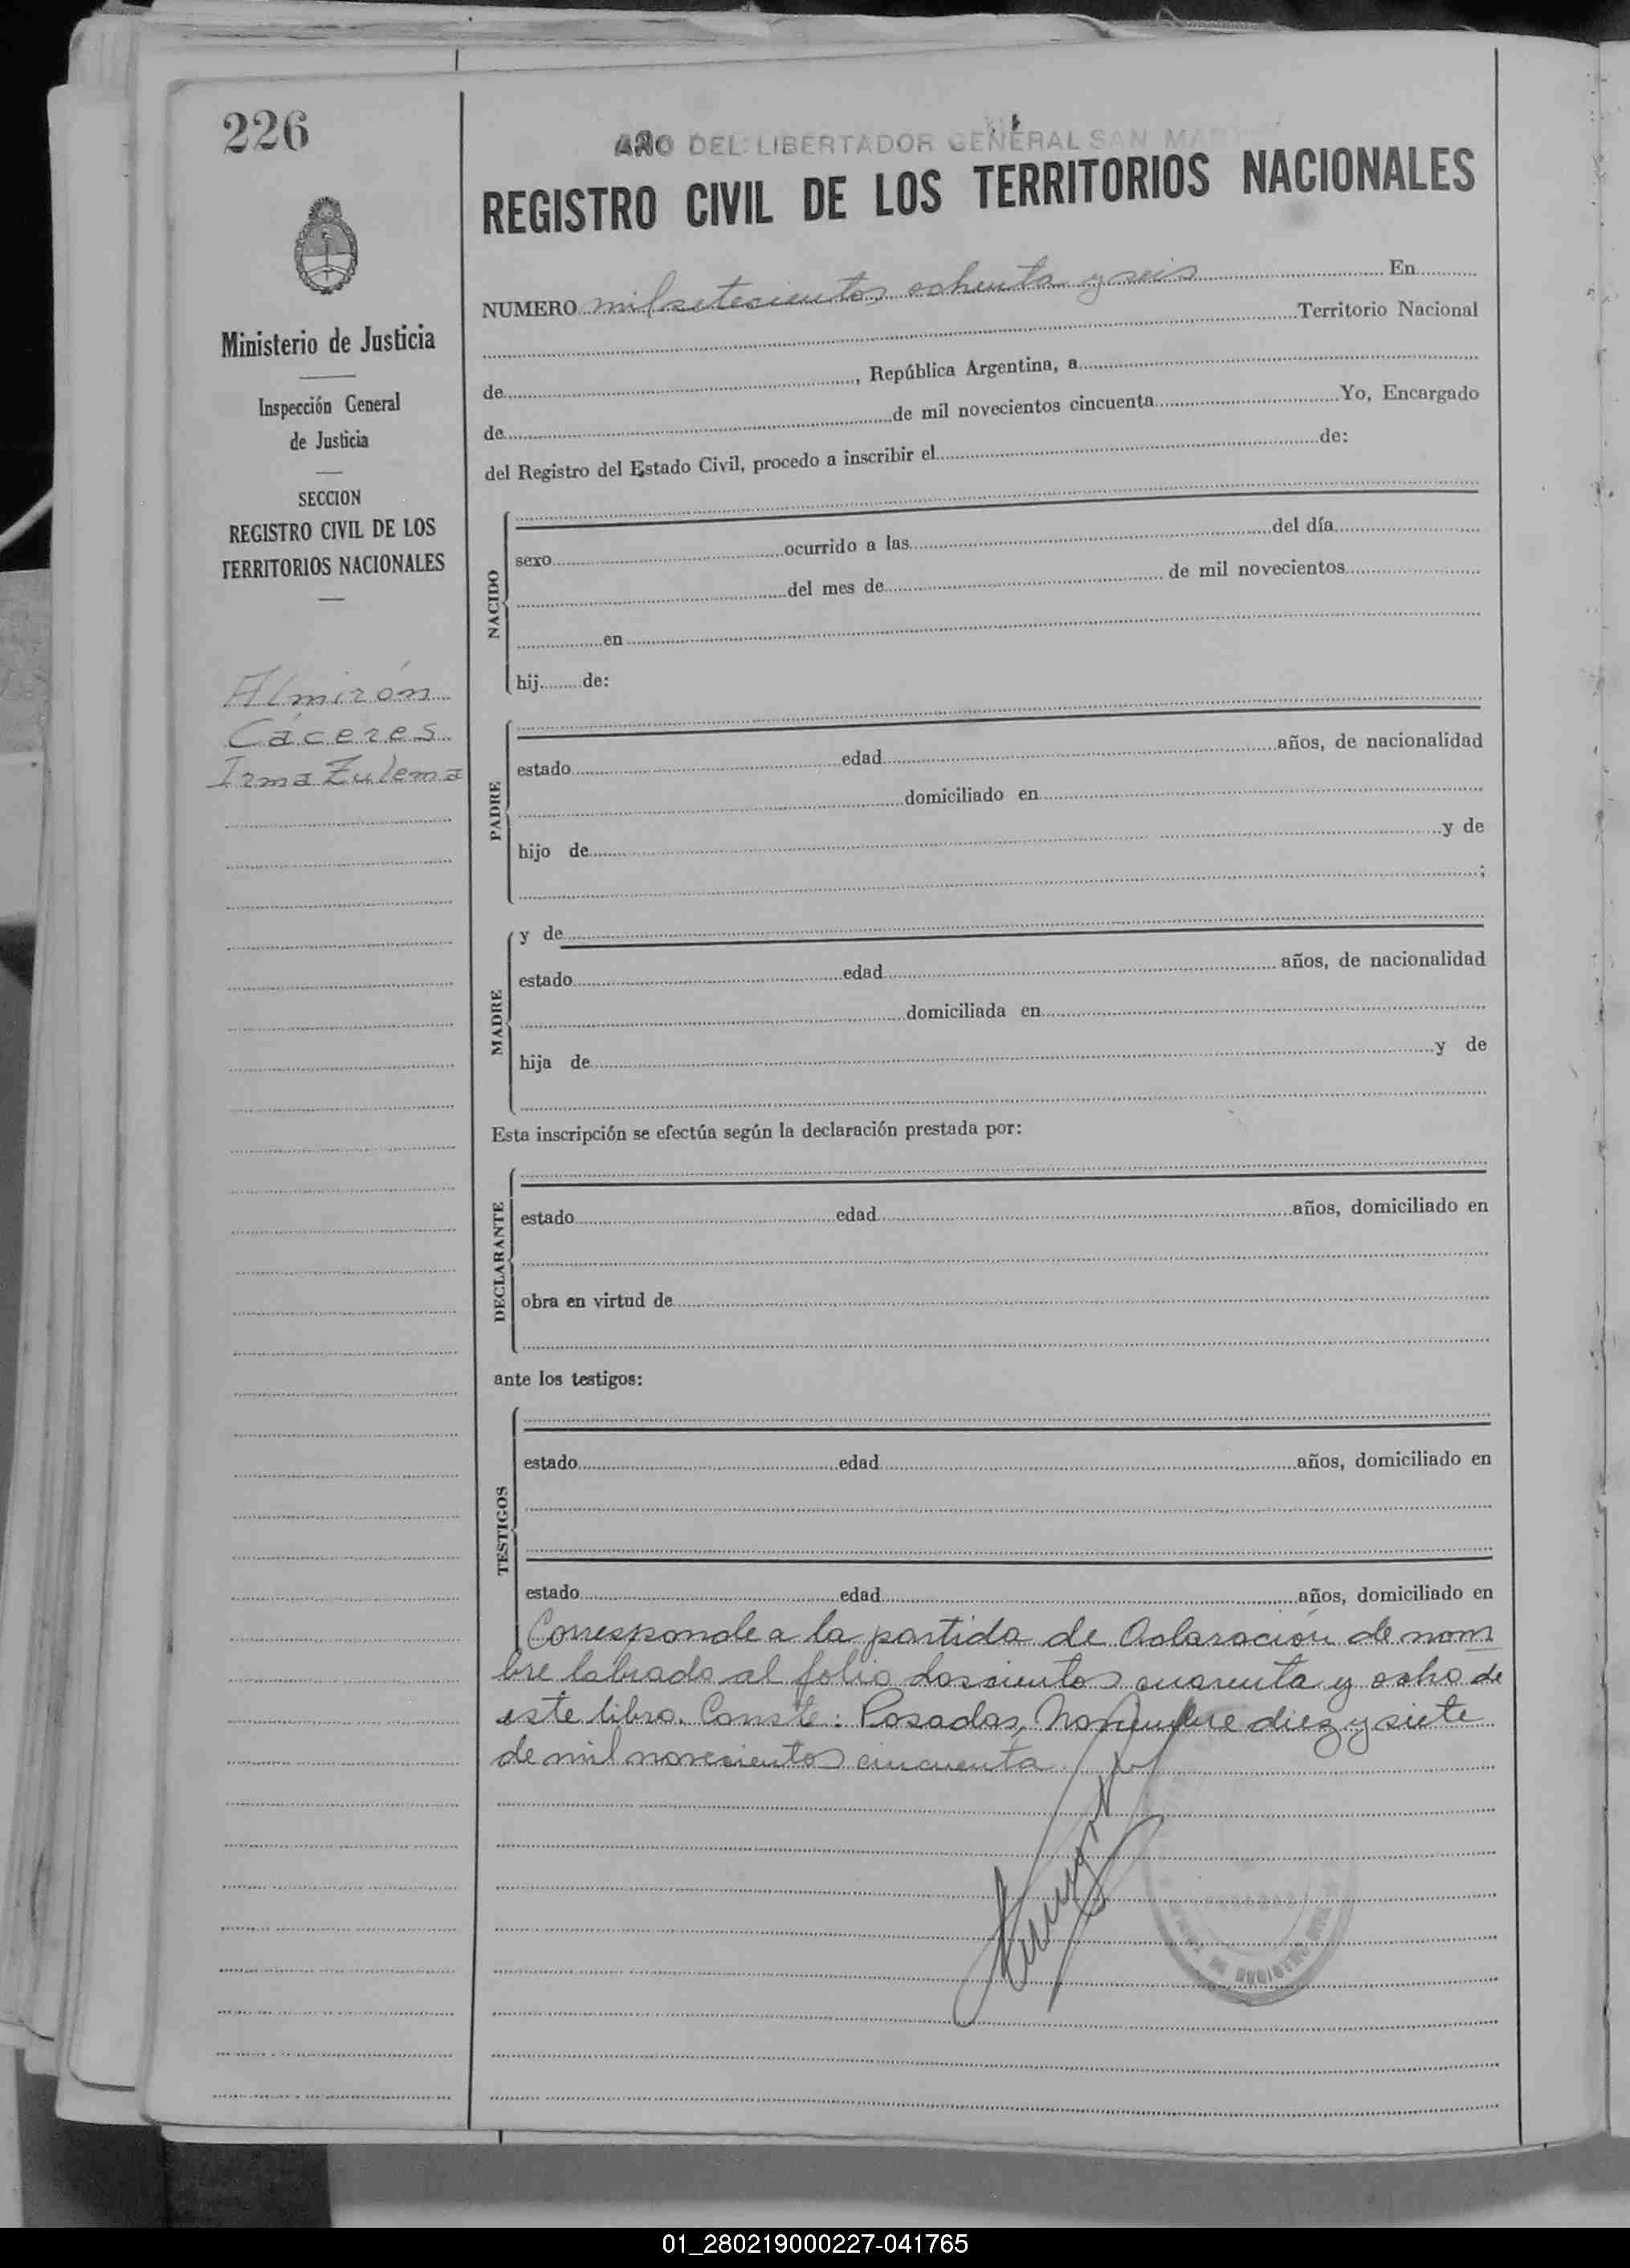 226
AÑO DEL LIBERTADOR GENERAL SAN
REGISTRO CIVIL DE LOS TERRITORIOS NACIONALES
Ministerio de Justicia
Inspección General
de Justicia
SECCION
REGISTRO CIVIL DE LOS
TERRITORIOS NACIONALES
Almirón
Cáceres
Irma Zulema
NUMERO mil setecientos ochenta y seis En
Territorio Nacional
de , República Argentina, a
de de mil novecientos cincuenta Yo, Encargado
del Registro del Estado Civil, procedo a inscribir el de:
NACIDO
sexo ocurrido a las del día
del mes de de mil novecientos
en
hij de:
PADRE
estado edad años, de nacionalidad
domiciliado en
hijo de y de
;
MADRE
y de
estado edad años, de nacionalidad
domiciliada en
hija de y de
Esta inscripción se efectúa según la declaración prestada por:
DECLARANTE
estado edad años, domiciliado en
obra en virtud de
ante los testigos:
TESTIGOS
estado edad años, domiciliado en
estado edad años, domiciliado en
Corresponde a la partida de Aclaración de nom
bre labrada al folio doscientos cuarenta y ocho de
este libro. Conste: Posadas, Noviembre diez y siete
de mil novecientos cincuenta.
DE REGISTRO
01_280219000227-041765